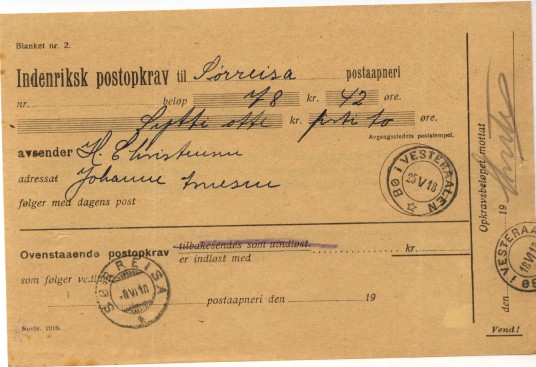 Blanket nr. 2.
Indenriksk postopkrav til Sørreisa postaapneri
nr. beløp 78 kr. 42 øre.
Sytti otte kr. forti to øre.
Avgangsstedets poststempel.
avsender H. Christensen
adressat Johanne
følger med dagens post
BØ I VESTERAALEN
25 VI 18
Ovenstaaende postopkrav tilbakesendes som uindløst. kr.
er indløst med
som følger vedlagt
SØRREISA
-8 VI 18
postaapneri den 19
Novbr. 1916.
Opkrævsbeløpet mottat
den 19
BØ I VESTERAALEN
18 VI 18
Vend!